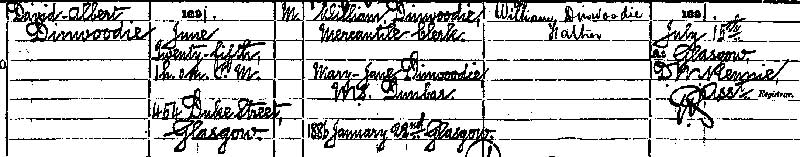 David Albert
Dinwoodie
1891.
June
Twenty-fifth,
1h. 0m. P.M.
454 Duke Street,
Glasgow.
M.
William Dinwoodie
Mercantile Clerk.
Mary-Jane Dinwoodie
M.S. Dunbar.
1886 January 22nd Glasgow.
William Dinwoodie
Father
1891
July 15th
At Glasgow.
Registrar.